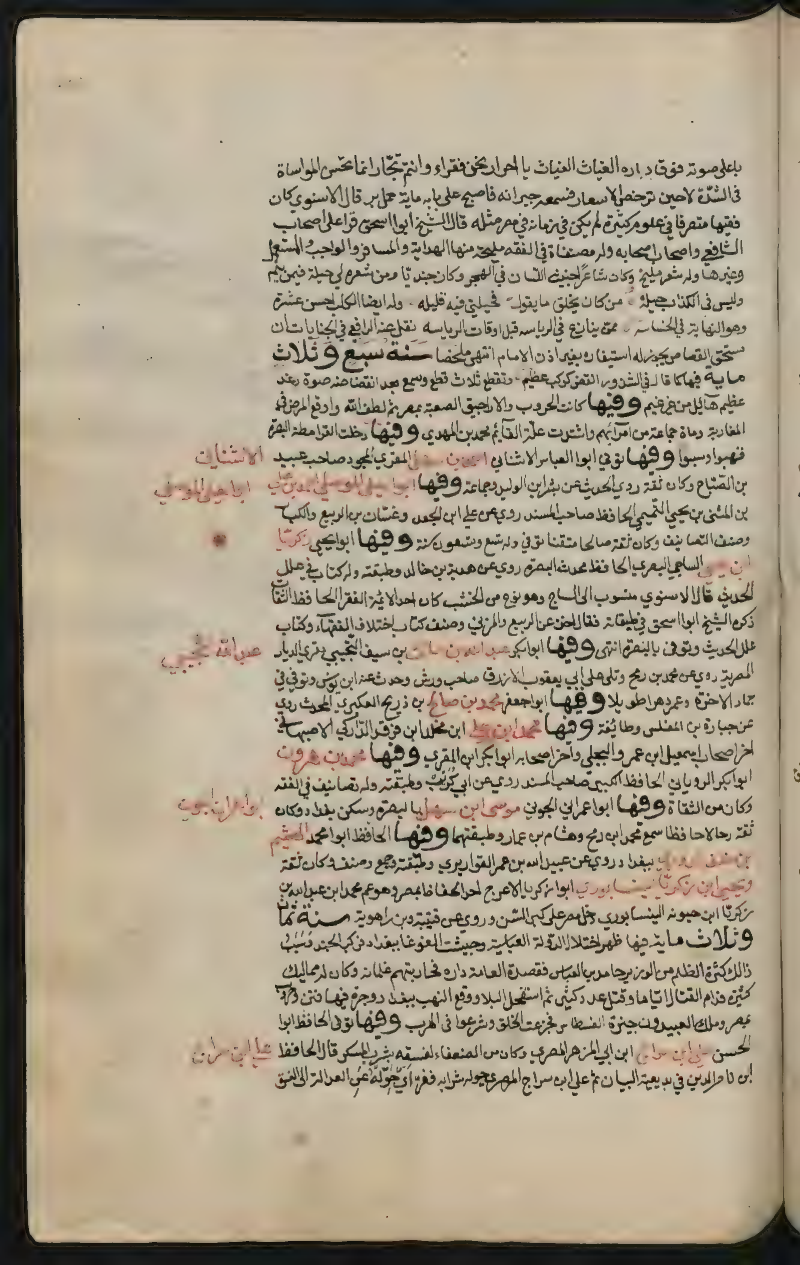 باعلى صوته فوق داره الغياث الغياث يا احرار نحن فقراء وانتم تجار انما تحسن المواساة
في الشدة لا حين ترخص الاسعار فسمعه جيرانه فاصبح على بابه ماية حمل بر قال الاسنوي كان
فقيها متصرفا في علوم كثيرة لم يكن في زمانه في مصر مثله قال الشيخ ابوا اسحق قرا على اصحاب
الشافعي واصحاب اصحابه وله مصنفاة في الفقه مليحة منها الهداية والمسافر والواجب والمستعمل
وغيرها وله شعر مليح وكان شاعرا خبيث اللسان في الهجو وكان جنديا ومن شعره لي حيلة فيمن ينم
وليس في الكذاب حيلة من كان يخلق ما يقول فحيلتي فيه قليله وله ايضا الكلب احسن عشرة
وهو النهاية في الخساسه ممن ينازع في الرياسه قبل اوقات الرياسه نقل عنه الرافعي في الجنايات ان
مستحق القصاص يجوز له استيفاؤه بغير اذن الامام انتهى ملخصا سنة سبع وثلاث
ماية فيها كما قال في الشذور انقض كوكب عظيم وتقطع ثلاث قطع وسمع بعد انقضاضه صوة رعد
عظيم هايل من غير غيم وفيها كانت الحروب والاراجيف الصعبة بمصر ثم لطف الله واوقع المرض في
المغاربة وماة جماعة من امرائهم واشتدت علة القايم محمد بن المهدي وفيها دخلت القرامطة البصرة
فنهبوا وسبوا وفيها توفي ابوا العباس الاشناني احمد بن سهل المقري المجود صاحب عبيد
الاشناني
بن الصباح وكان ثقة روي الحديث عن بشر ابن الوليد وجماعة وفيها ابوا يعلى الموصلي احمد بن علي
ابوا يعلى الموصلي
بن المثنى بن يحيى التميمي الحافظ صاحب المسند روي عن علي ابن الجعد وغسان بن الربيع والكبار
وصنف التصانيف وكان ثقة صالحا متقنا توفي وله تسع وتسعون سنة وفيها ابوا يحيى زكريا
ابن يحيى الساجي البصري الحافظ محدث البصرة روي عن هدبة بن خالد وطبقته وله كتاب في علل
الحديث قال الاسنوي منسوب الى الساج وهو نوع من الخشب كان احد الائمة الفقها الحافظ الثقاة
ذكره الشيخ ابوا اسحق في طبقاته فقال اخذ عن الربيع والمزني وصنف كتاب اختلاف الفقهاء وكتاب
علل الحديث وتوفي بالبصرة انتهى وفيها ابوا بكر عبد الله بن مالك بن سيف التجيبي مقري الديار
عبد الله تجيبي
المصرية روي عن محمد بن رمح وتلى على ابي يعقوب الازرق صاحب ورش وحدث عنه ابن يونس وتوفي في
جماد الاخرة وعمر دهرا طويلا وفيها ابوا جعفر محمد بن صالح بن ذريح العكبري المحدث روي
عن جبارة بن المغلس وطايفة وفيها محمد ابن علي ابن مخلد ابن فرقد الداركي الاصبهاني
اخر اصحاب اسمعيل ابن عمرو البجلي واخر اصحابه ابوا بكر ابن المقري وفيها محمد بن هرون
ابوا بكر الروياني الحافظ الكبير صاحب المسند روي عن ابي كريب وطبقته وله تصانيف في الفقه
وكان من الثقاة وفيها ابوا عمران الجوني موسى ابن سهل بالبصرة وسكن بغداد وكان
ابوا عمران الجوني
ثقة رحالا حافظا سمع محمد ابن رمح وهشام بن عمار وطبقتهما وفيها الحافظ ابوا محمد الهيثم
بن خلف الدوري ببغداد روي عن عبيد الله بن عمر القواريري وطبقته وجمع وصنف وكان ثقة
ويحيى ابن زكريا النيسابوري ابوا زكريا الاعرج احد الحفاظ بمصر وهو عم محمد ابن عبد الله بن
زكريا ابن حيويه النيسابوري دخل مصر على كبر السن وروي عن قتيبة وبن راهوية سنة ثمان
وثلاث ماية فيها ظهر اختلال الدولة العباسية وجيشت الغوغا ببغداد فركب الجند وسبب
ذالك كثرة الظلم من الوزير حامد بن العباس فقصدة العامة داره فحاربتهم غلمانه وكان له مماليك
كثيرة فدام القتال اياما وقتل عدد كثير ثم استفحل البلا ووقع النهب ببغداد وجرة فيها فتن وحروب
بمصر وملك العبيديون جيزة الفسطاط فجزعت الخلق وشرعوا في الهرب وفيها توفي الحافظ ابوا
الحسن علي ابن سراج ابن ابي الازهر المصري وكان من الضعفاء لفسقه بشرب المسكر قال الحافظ
علي ابن سراج
ابن ناصر الدين في بديعية البيان ثم علي ابن سراج المصري حوله شرابه ففر اي حوله عن العدالة الى الفسق